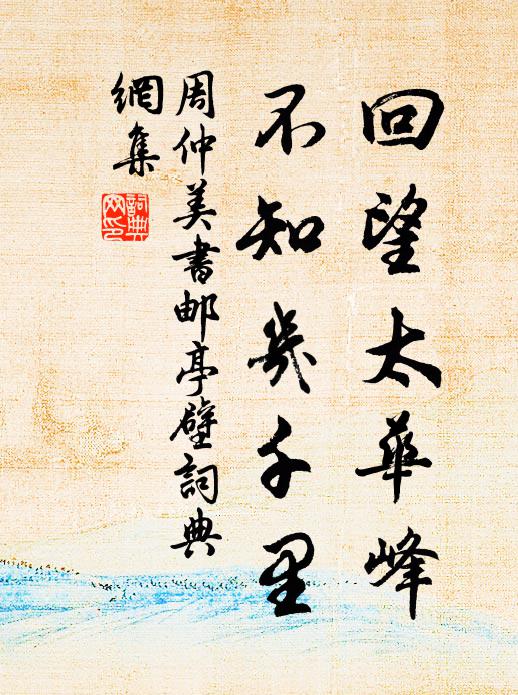 回望太华峰
不知几千里
周仲美书邮亭壁詞典
網集
詞典
网印